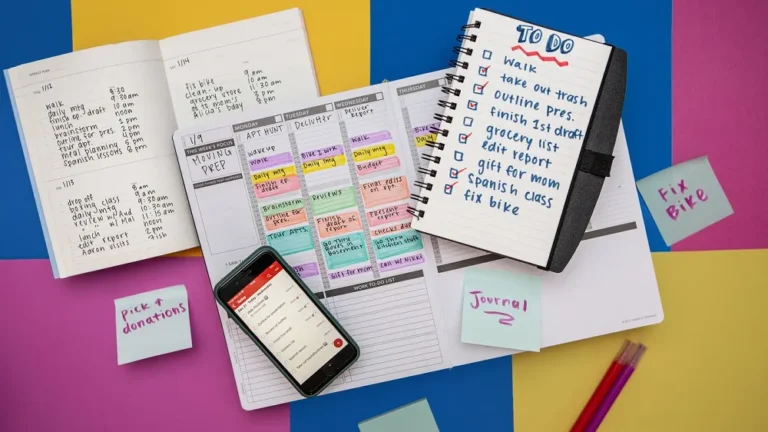 1/12
walk
daily mtg
finish ep. draft
lunch
brainstorm
outline for pres.
tour apt.
meal planning
spanish lessons
8:30
9 am
9:30 am
10 am
noon
1 pm
2 pm
4 pm
6 pm
8 pm
1/13
drop off
boxing class
daily mtg
lunch
edit report
Aaron visits
8 am
9 am
9:30 am
10:30 am
11:15 am
noon
2 pm
7ish
1/14
fix bike
clean-up
grocery store
go to mom's
Alicia's bday
9 am
10 am
11:30 am
3 pm
8 pm
1/9
THIS WEEK'S FOCUS
MOVING
PREP
MONDAY
APT HUNT
Wake up
Walk
Daily mtg
Finish ep.
draft
Brainstorm
Outline for
pres.
Tour apts.
TUESDAY
Declutter
Bike 2 work
Daily mtg
Reviews
Finish
draft
Go thru
boxes in
basement
Gift for mom
WEDNESDAY
Deliver
Report
Walk
Daily mtg
Budget
Final edits
on rpt
Present
report
Checks due
Go thru
kitchen stuff
Call w/ Nikki
THURSDAY
Bike
Daily
WORK TO-DO LIST
TO DO
walk
take out trash
outline pres.
finish 1st draft
grocery list
edit report
gift for mom
spanish class
fix bike
Fix
Bike
Pick ↑
donations
Journal